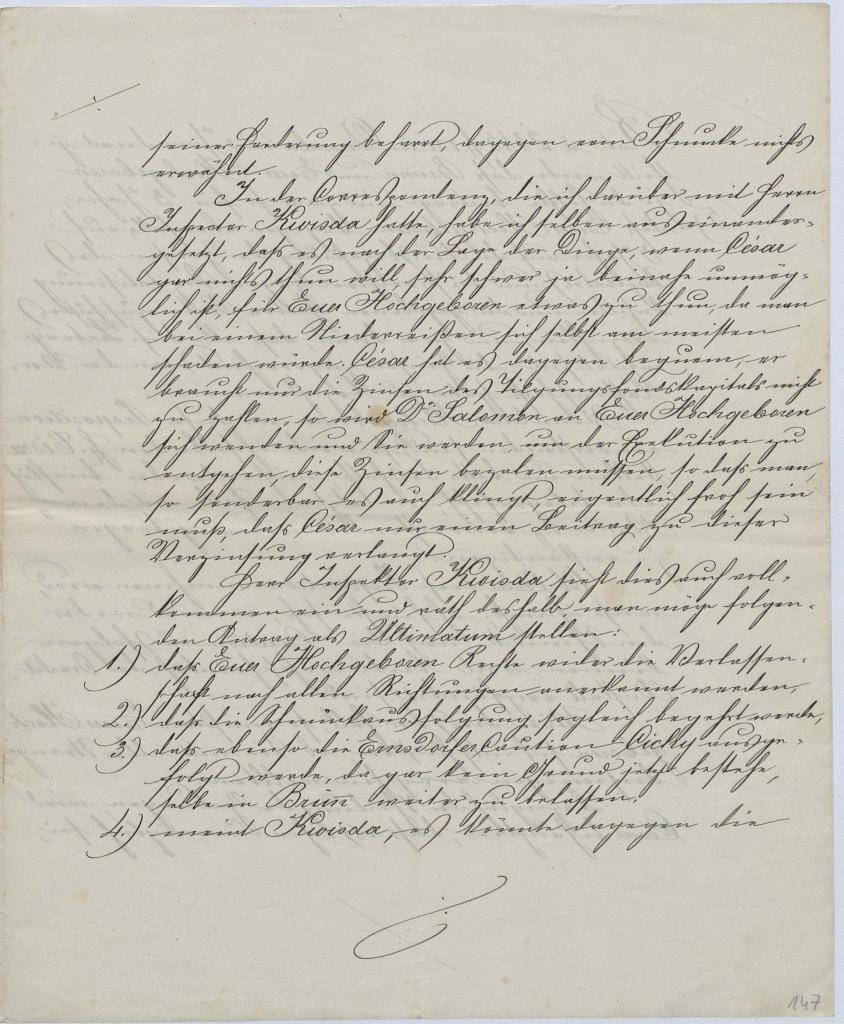 seiner Forderung beharrt, dagegen vom Schmucke nichts
erwähnt.
In der Correspondenz, die ich darüber mit Herrn
Inspector Kwisda hatte, habe ich selben auseinander-
gesetzt, daß es nach der Lage der Dinge, wenn César
gar nichts thun will, sehr schwer ja beinahe unmög-
lich ist, für Euer Hochgeboren etwas zu thun, da man
bei einem Niederreißen sich selbst am meisten
schaden würde. César hat es dagegen bequem, er
braucht nur die Zinsen des Tilgungsfondskapitals nicht
zu zahlen, so wird Dr. Salomon an Euer Hochgeboren
sich wenden und Sie werden, um der Exekution zu
entgehen, diese Zinsen bezalen müssen, so daß man,
so sonderbar es auch klingt, eigentlich froh sein
muß, daß César nur einen Beitrag zu dieser
Verzinsung verlangt.
Herr Inspektor Kwisda sieht dies auch voll-
kommen ein und räth deshalb, man möge folgen-
den Antrag als Ultimatum stellen:
1.) daß Euer Hochgeboren Rechte wider die Verlassen-
schaft nach allen Richtungen anerkannt werden,
2.) daß die Schmuckausfolgung sogleich begehrt werde,
3.) daß ebenso die Ernsdorfer Caution Cichy ausge-
folgt werde, da gar kein Grund jetzt bestehe,
selbe in Brünn weiter zu belassen.
4.) meint Kwisda, es könnte dagegen die
147